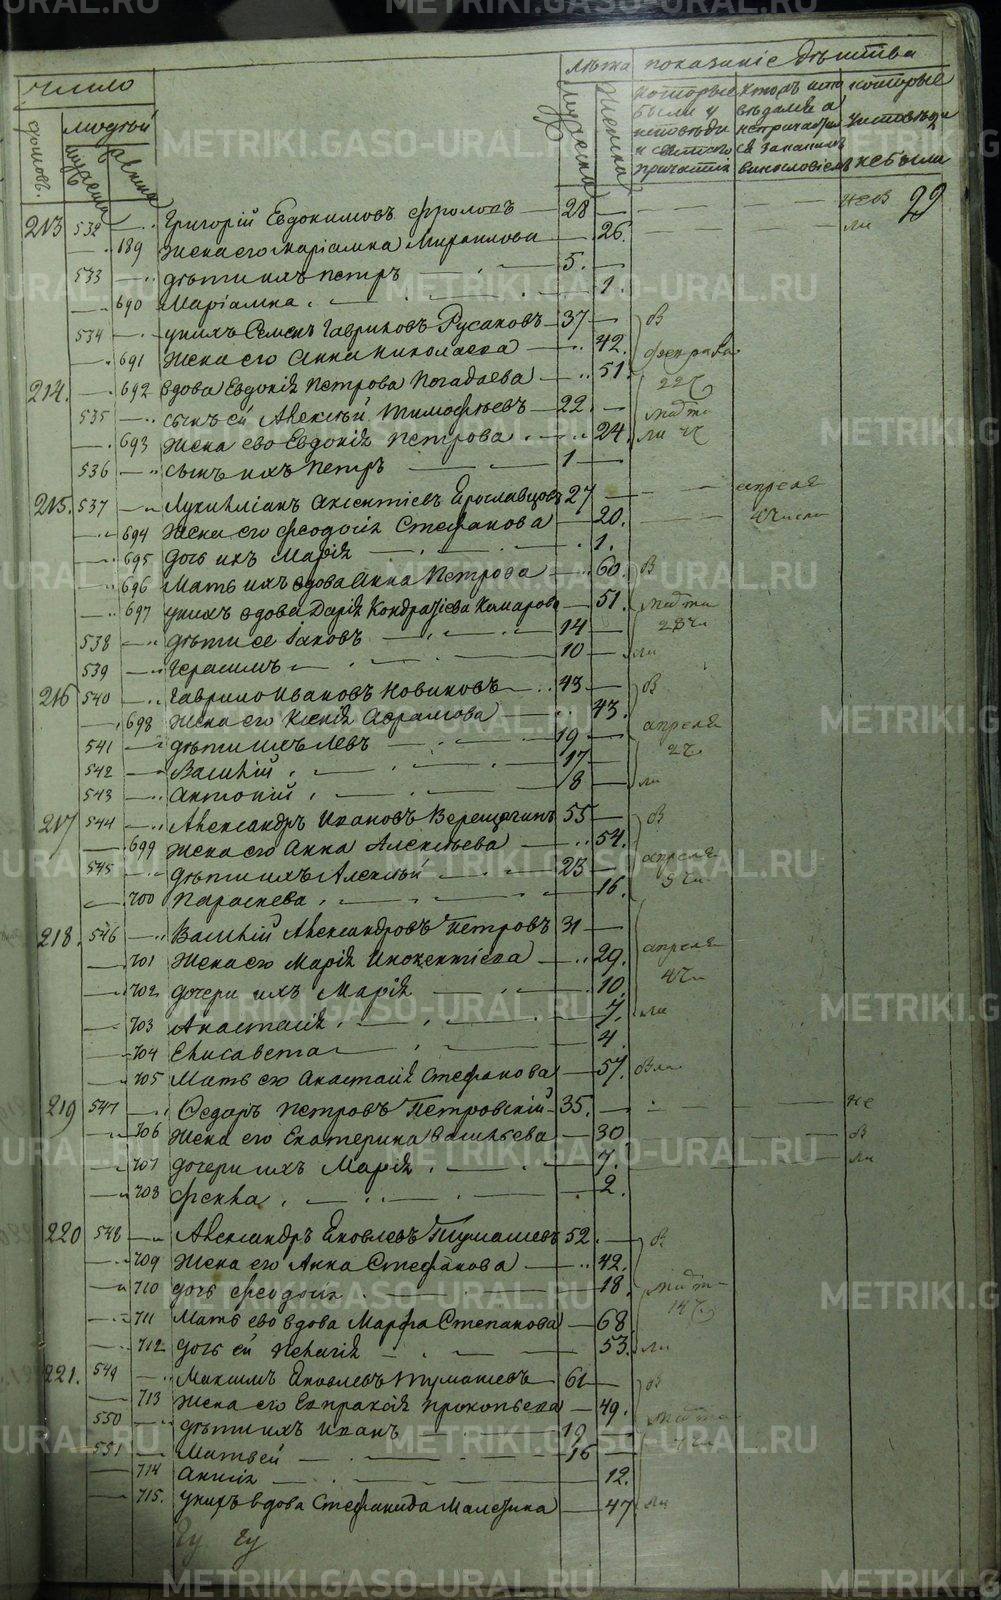 число лѣта показаніе дѣйства
домовъ людей мужеска женска
мужеска женска которые были у исповѣди и святаго причастія которые
не были
22
213 532 Григорій Евдокимовъ Фроловъ 28 не в
689 жена его Маріамна Мираилова 26. ли
533 дѣти ихъ Петръ 5.
690 Маріамна 1.
534 у нихъ Семенъ Гавриловъ Русаковъ 37 в
691 жена его Анна Николаева 42. февраля
214. 692 вдова Евдокія Петрова Погадаева 51. 22
535 сынъ ей Алексѣй Тимофѣевъ 22. марта
693 жена ево Евдокія Петрова 24. ли
536 сынъ ихъ Петръ 1
215. 537 Аксентіевъ Ярославцовъ 27 апреля
694 жена его Феодосія Стефанова 20. 4 числа
695 дочь ихъ Марія 1.
696 Мать ихъ вдова Анна Петрова 60. в
697 у нихъ вдова Дарія Кондратіева Комарова 51. марта
538 дѣти ее Іаковъ 14 28 ч
539 Герасимъ 10 ли
216 540 Гаврило Ивановъ Новиковъ 43 в
698 жена его Ксенія Аврамова 43. апреля
541 дѣти ихъ Левъ 19 2 ч
542 Василій 17
543 Антоній 8 ли
217 544 Александръ Ивановъ Верещагинъ 55 в
699 жена его Анна Алексѣева 54. апреля
545 дѣти ихъ Алексѣй 23 3 ч
700 Параскева 16.
218. 546 Василій Александровъ Петровъ 31
701 жена его Марія Инокентіева 29. апреля
702 дочери ихъ Марія 10. 4 ч
703 Анастасія 7. ли
704 Елисавета 4.
705 Мать его Анастасія Стефанова 57. в ли
219 547 Ѳедоръ Петровъ Петровскій 35. не
706 жена его Екатерина Васильева 30 в
707 дочери ихъ Марія 7. ли
708 Фекла 2.
220 548 Александръ Яковлевъ Тумашевъ 52. в
709 жена его Анна Стефанова 42.
710 дочь Феодосія 18. марта
711 Мать ево вдова Марфа Степанова 68 14 ч
712 дочь ей Пелагія 53. ли
221. 549 Максимъ Яковлевъ Тумашевъ 61 в
713 жена его Евпраксія Прокопьева 49. марта
550 дѣти ихъ Иванъ 19
551 Матвей 16
714 Анисія 12.
715. у нихъ вдова Стефанида Малыгина 47. ли
METRIKI.GASO-URAL.RU